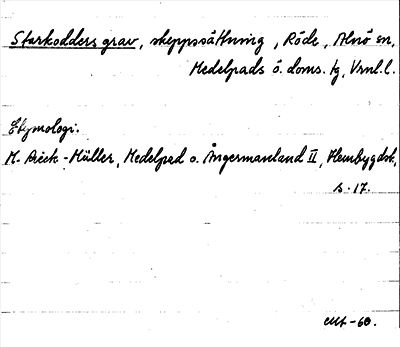 Starkodders grav, skeppssättning, Röde, Alnö sn,
Medelpads ö. doms. tg, Vrnl.l.
Etymologi.
M. Rieck-Müller, Medelpad o. Ångermanland II, Hembygdsb,
s. 17.
-60.